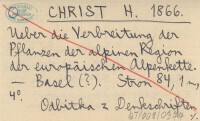 CHRIST H. 1866.
Ueber die Verbreitung der
Pflanzen der alpinen Region
der europäischen Alpenkette.
— Basel (?). Stron 84, 1 m,
4°.
Odbitka z Denkschriften